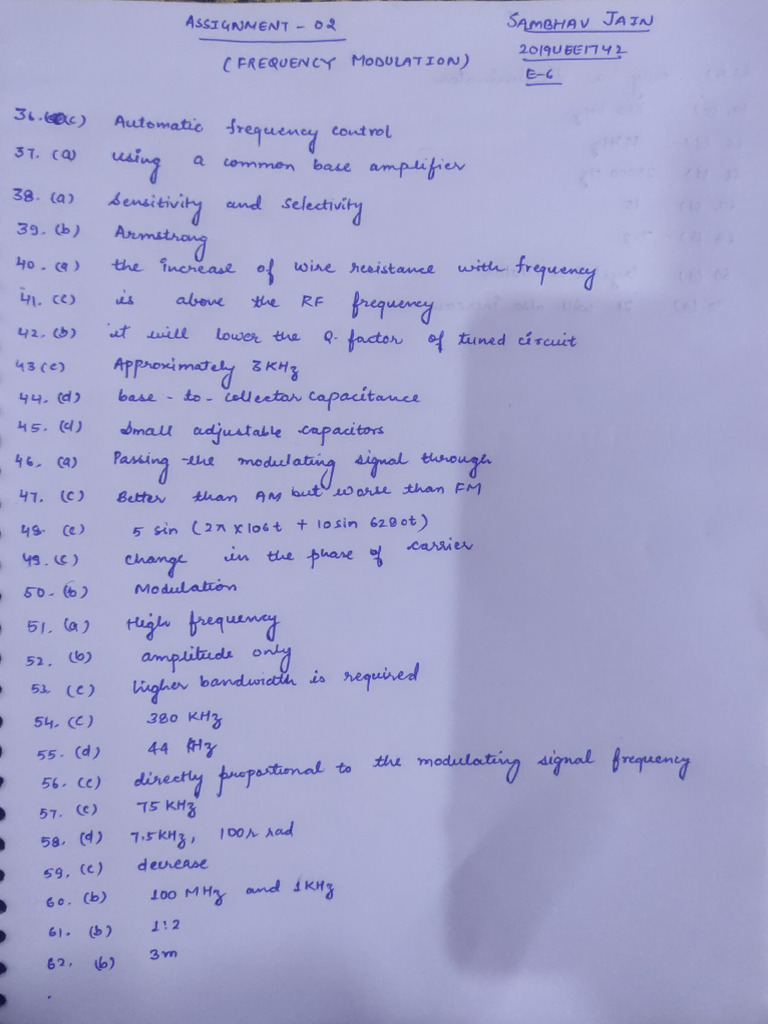 ASSIGNMENT - 02
SAMBHAV JAIN
2019UEE1742
(FREQUENCY MODULATION)
E-6
36. (c) Automatic frequency control
37. (a) using a common base amplifier
38. (a) Sensitivity and selectivity
39. (b) Armstrong
40. (a) the increase of wire resistance with frequency
41. (c) is above the RF frequency
42. (b) it will lower the Q-factor of tuned circuit
43 (c) Approximately 3 KHz
44. (d) base-to-collector capacitance
45. (d) Small adjustable capacitors
46. (a) Passing the modulating signal through
47. (c) Better than AM but worse than FM
48. (c) 5 sin (2π x 106t + 10 sin 6280t)
49. (c) change in the phase of carrier
50. (b) Modulation
51. (a) High frequency
52. (b) amplitude only
53. (c) higher bandwidth is required
54. (c) 380 KHz
55. (d) 44 KHz
56. (c) directly proportional to the modulating signal frequency
57. (c) 75 KHz
58. (d) 7.5KHz, 100π rad
59. (c) decrease
60. (b) 100 MHz and 1KHz
61. (b) 1:2
62. (b) 3m